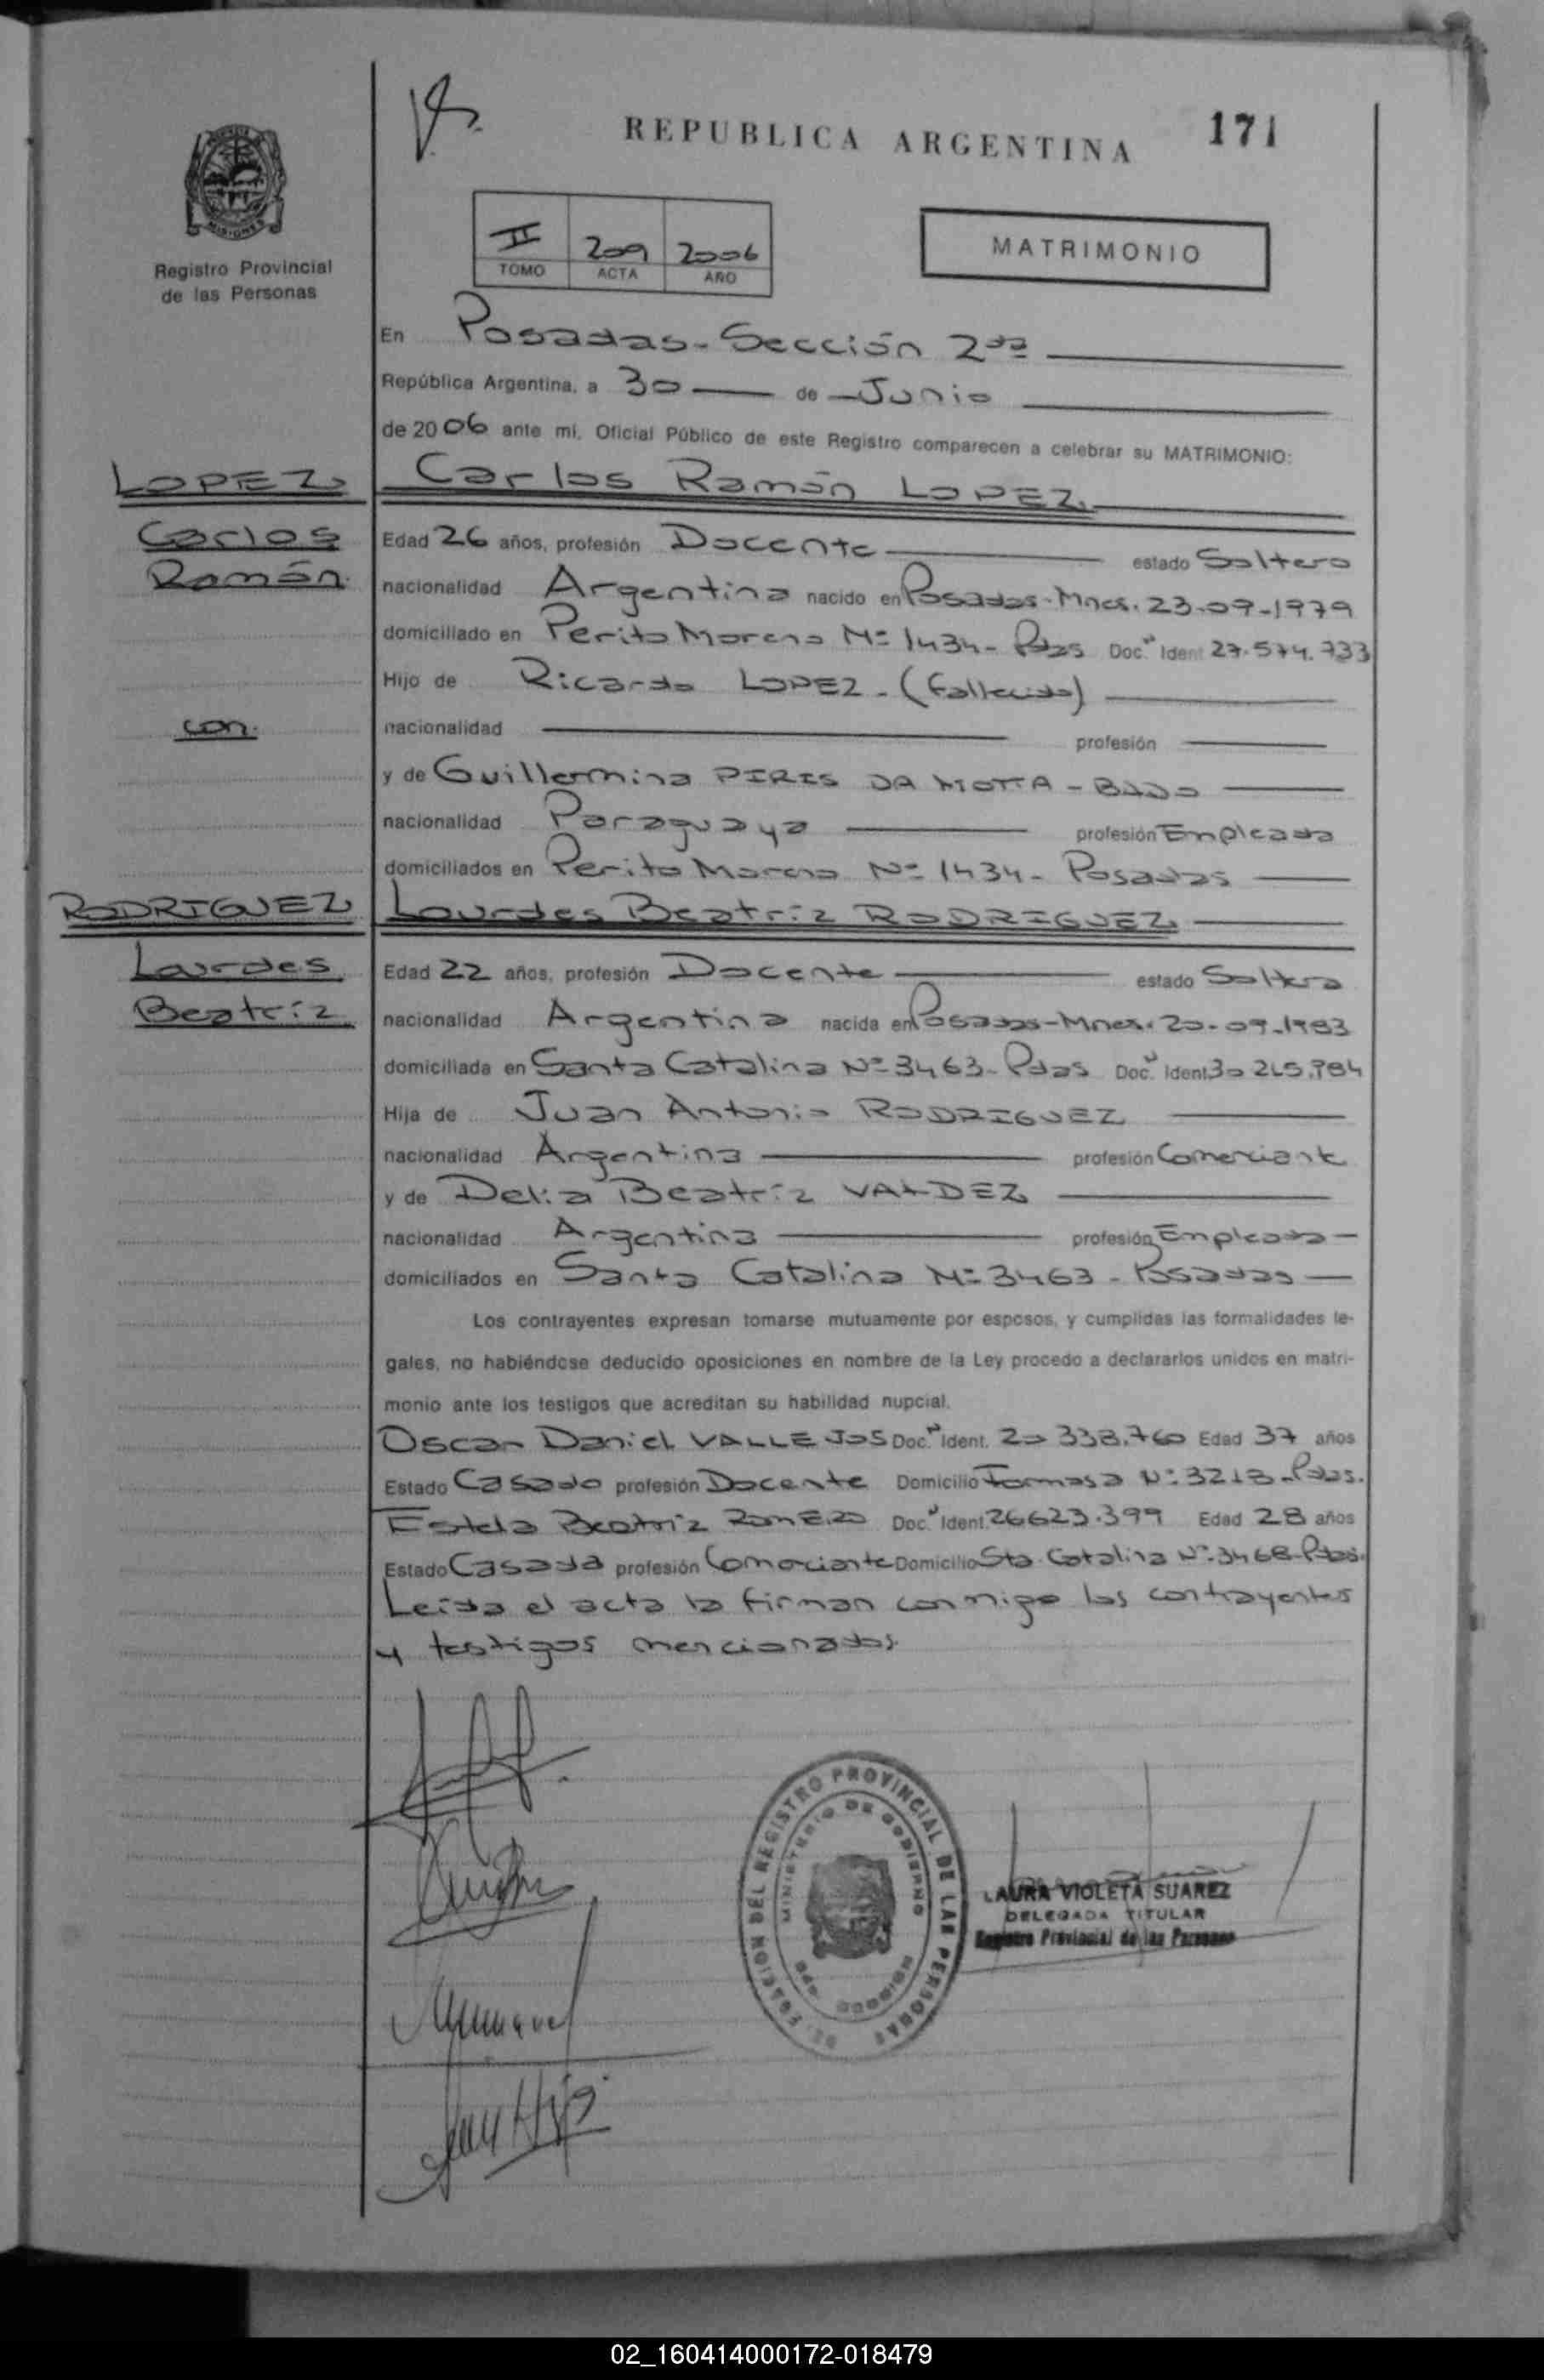 REPUBLICA ARGENTINA 171
MISIONES
Registro Provincial
de las Personas
II 209 2006
TOMO ACTA AÑO
MATRIMONIO
En Posadas-Sección 2da
República Argentina, a 30 de Junio
de 2006 ante mí, Oficial Público de este Registro comparecen a celebrar su MATRIMONIO:
LOPEZ Carlos Ramón LOPEZ.
Carlos Edad 26 años, profesión Docente estado Soltero
Ramón. nacionalidad Argentina nacido en Posadas-Mnes. 23-09-1979
domiciliado en Perito Moreno Nº 1434- Pdas Doc. Ident 27.574.733
Hijo de Ricardo LOPEZ-(Fallecido)
con. nacionalidad profesión
y de Guillermina PIRIS DA MOTTA - BADO
nacionalidad Paraguaya profesión Empleada
domiciliados en Perito Moreno Nº 1434- Posadas
RODRIGUEZ Lourdes Beatríz RODRIGUEZ
Lourdes Edad 22 años, profesión Docente estado Soltera
Beatríz nacionalidad Argentina nacida en Posadas-Mnes. 20-09-1983
domiciliada en Santa Catalina Nº 3463- Pdas Doc. Ident 30
Hija de Juan Antonio RODRIGUEZ
nacionalidad Argentina profesión Comerciante
y de Delia Beatríz VALDEZ
nacionalidad Argentina profesión Empleada
domiciliados en Santa Catalina Nº 3463 - Posadas
Los contrayentes expresan tomarse mutuamente por esposos, y cumplidas las formalidades le-
gales, no habiéndose deducido oposiciones en nombre de la Ley procedo a declararlos unidos en matri-
monio ante los testigos que acreditan su habilidad nupcial.
Oscar Daniel VALLEJOS Doc. Ident. 20 338.760 Edad 37 años
Estado Casado profesión Docente Domicilio Formosa Nº 3213-Pdas.
Estela Beatriz ROMERO Doc. Ident. 26623.399 Edad 28 años
Estado Casada profesión Comerciante Domicilio Sta. Catalina Nº 3468-Pdas.
Leída el acta la firman conmigo los contrayentes
y testigos mencionados.
DEL REGISTRO PROVINCIAL DE LAS PERSONAS
MINISTERIO DE GOBIERNO
LAURA VIOLETA SUAREZ
DELEGADA TITULAR
Registro Provincial de las Personas
02_160414000172-018479